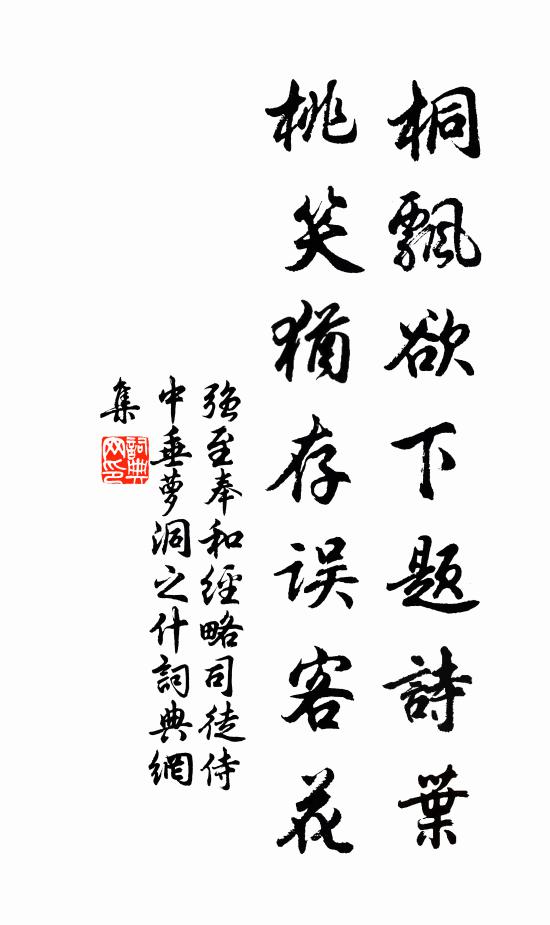 桐飄欲下題詩葉
桃笑猶存誤客花
強至奉和經略司徒侍
中垂夢洞之什詞典網
集
詞典網印